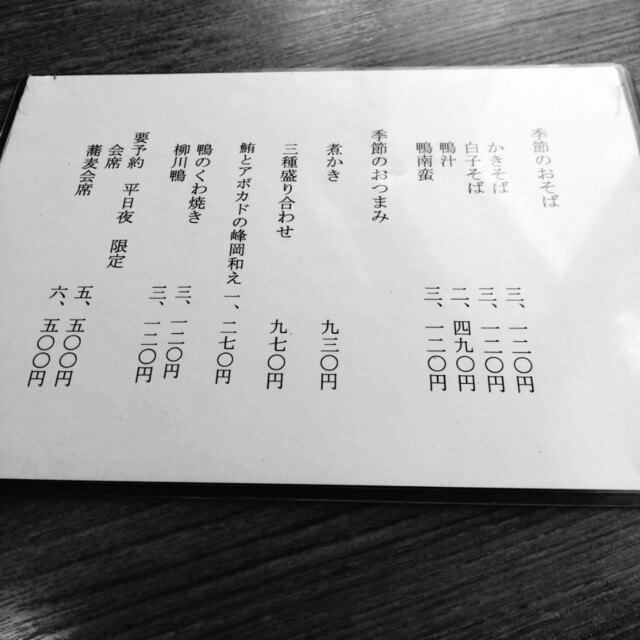 季節のおそば
かきそば 三、一二〇円
白子そば 三、一二〇円
鴨汁 二、四九〇円
鴨南蛮 三、一二〇円
季節のおつまみ
煮かき 九三〇円
三種盛り合わせ 九七〇円
鮪とアボカドの峰岡和え 一、二七〇円
鴨のくわ焼き 三、一二〇円
柳川鴨 三、一二〇円
要予約 平日夜 限定
会席 五、五〇〇円
蕎麦会席 六、五〇〇円